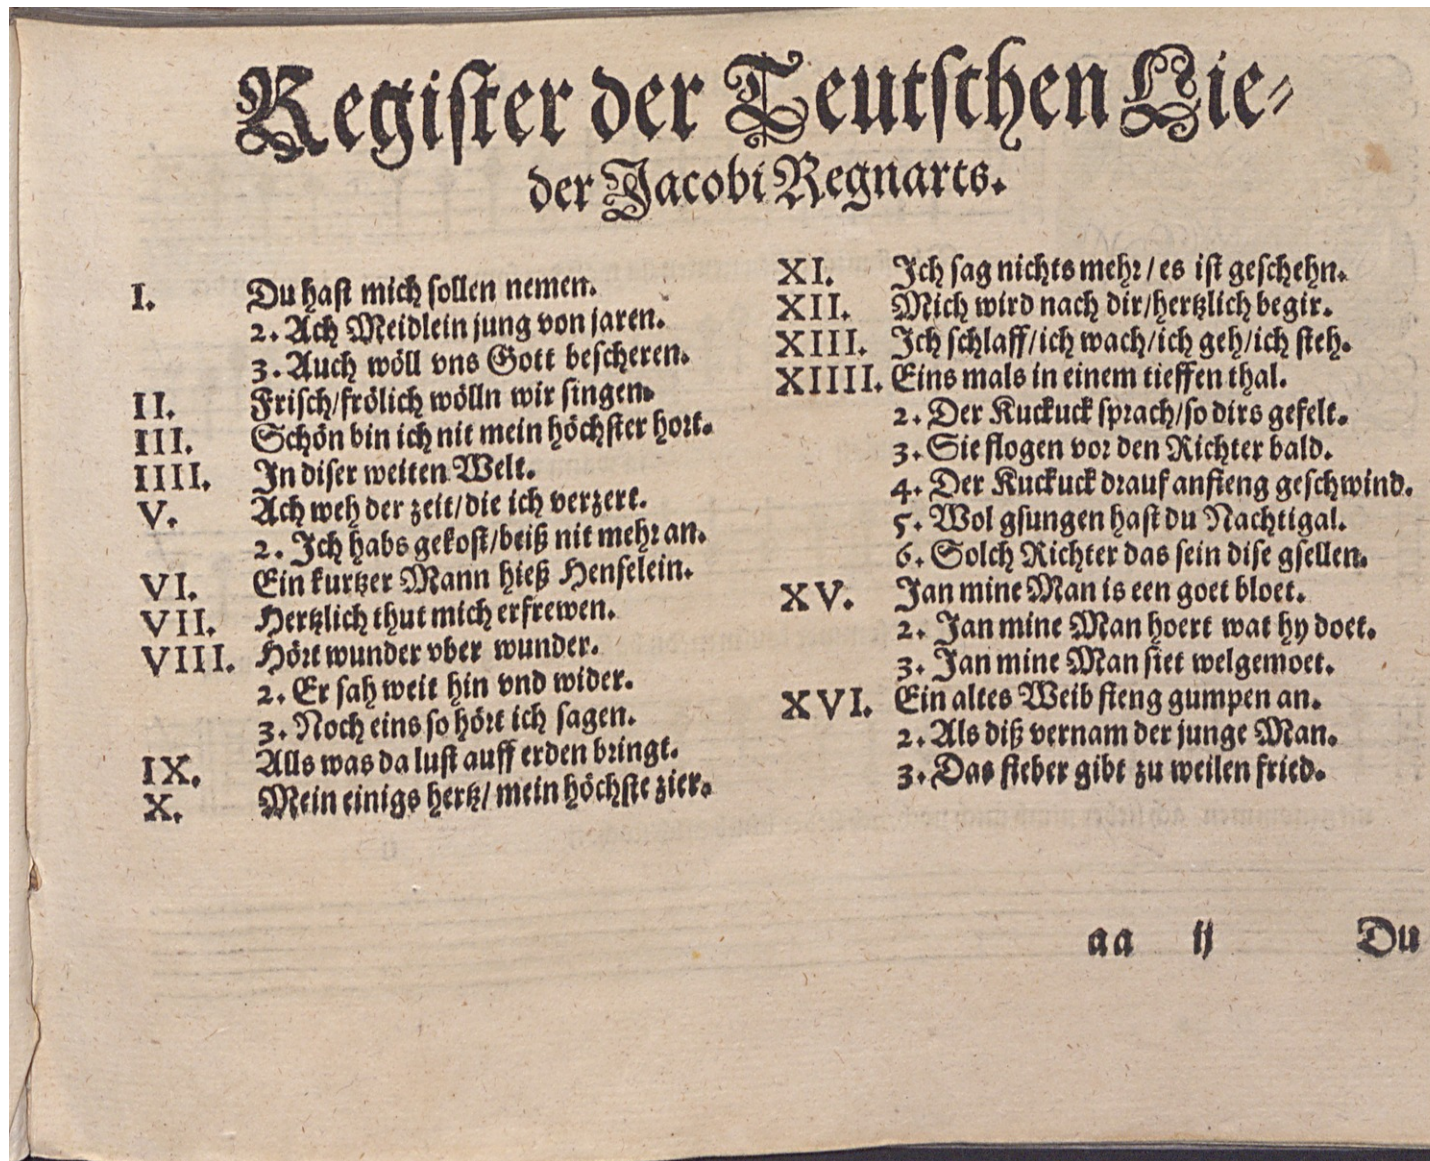 Register der Teutschen Lie⸗
der Jacobi Regnarts.
I. Du hast mich sollen nemen.
2. Ach Meidlein jung von jaren.
3. Auch wöll vns Gott bescheren.
II. Frisch/frölich wölln wir singen.
III. Schön bin ich nit mein höchster hort.
IIII. In diser weiten Welt.
V. Ach weh der zeit/die ich verzert.
2. Ich habs gekost/beiß nit mehr an.
VI. Ein kurtzer Mann hieß Henselein.
VII. Hertzlich thut mich erfrewen.
VIII. Hört wunder vber wunder.
2. Er sah weit hin vnd wider.
3. Noch eins so hört ich sagen.
IX. Alls was da lust auff erden bringt.
X. Mein einigs hertz/mein höchste zier.
XI. Ich sag nichts mehr/es ist geschehn.
XII. Mich wird nach dir/hertzlich begir.
XIII. Ich schlaff/ich wach/ich geh/ich steh.
XIIII. Eins mals in einem tieffen thal.
2. Der Kuckuck sprach/so dirs gefelt.
3. Sie flogen vor den Richter bald.
4. Der Kuckuck drauf anfieng geschwind.
5. Wol gsungen hast du Nachtigal.
6. Solch Richter das sein dise gsellen.
XV. Jan mine Man is een goet bloet.
2. Jan mine Man hoert wat hy doet.
3. Jan mine Man siet welgemoet.
XVI. Ein altes Weib fieng gumpen an.
2. Als diß vernam der junge Man.
3. Das fieber gibt zu weilen fried.
aa ij Du